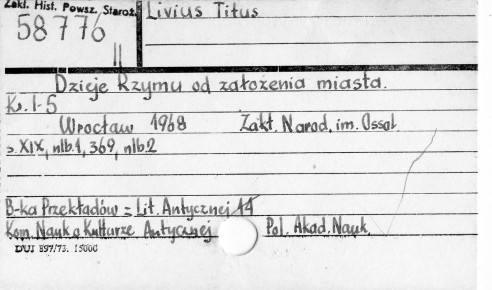 Zakł. Hist. Powsz. Staroż.
58776
Livius Titus
Dzieje Rzymu od założenia miasta.
Ks. 1-5
Wrocław 1968 Zakł. Narod. im. Ossol.
s. XIX, nlb.1, 369, nlb.2
B-ka Przekładów z Lit. Antycznej 14
Kom. Nauk o Kulturze Antycznej Pol. Akad. Nauk.
DUJ 897/73. 15000